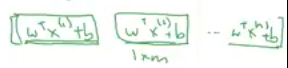 [ wᵀx⁽¹⁾+b wᵀx⁽²⁾+b ... wᵀx⁽ᵐ⁾+b ]
1×m